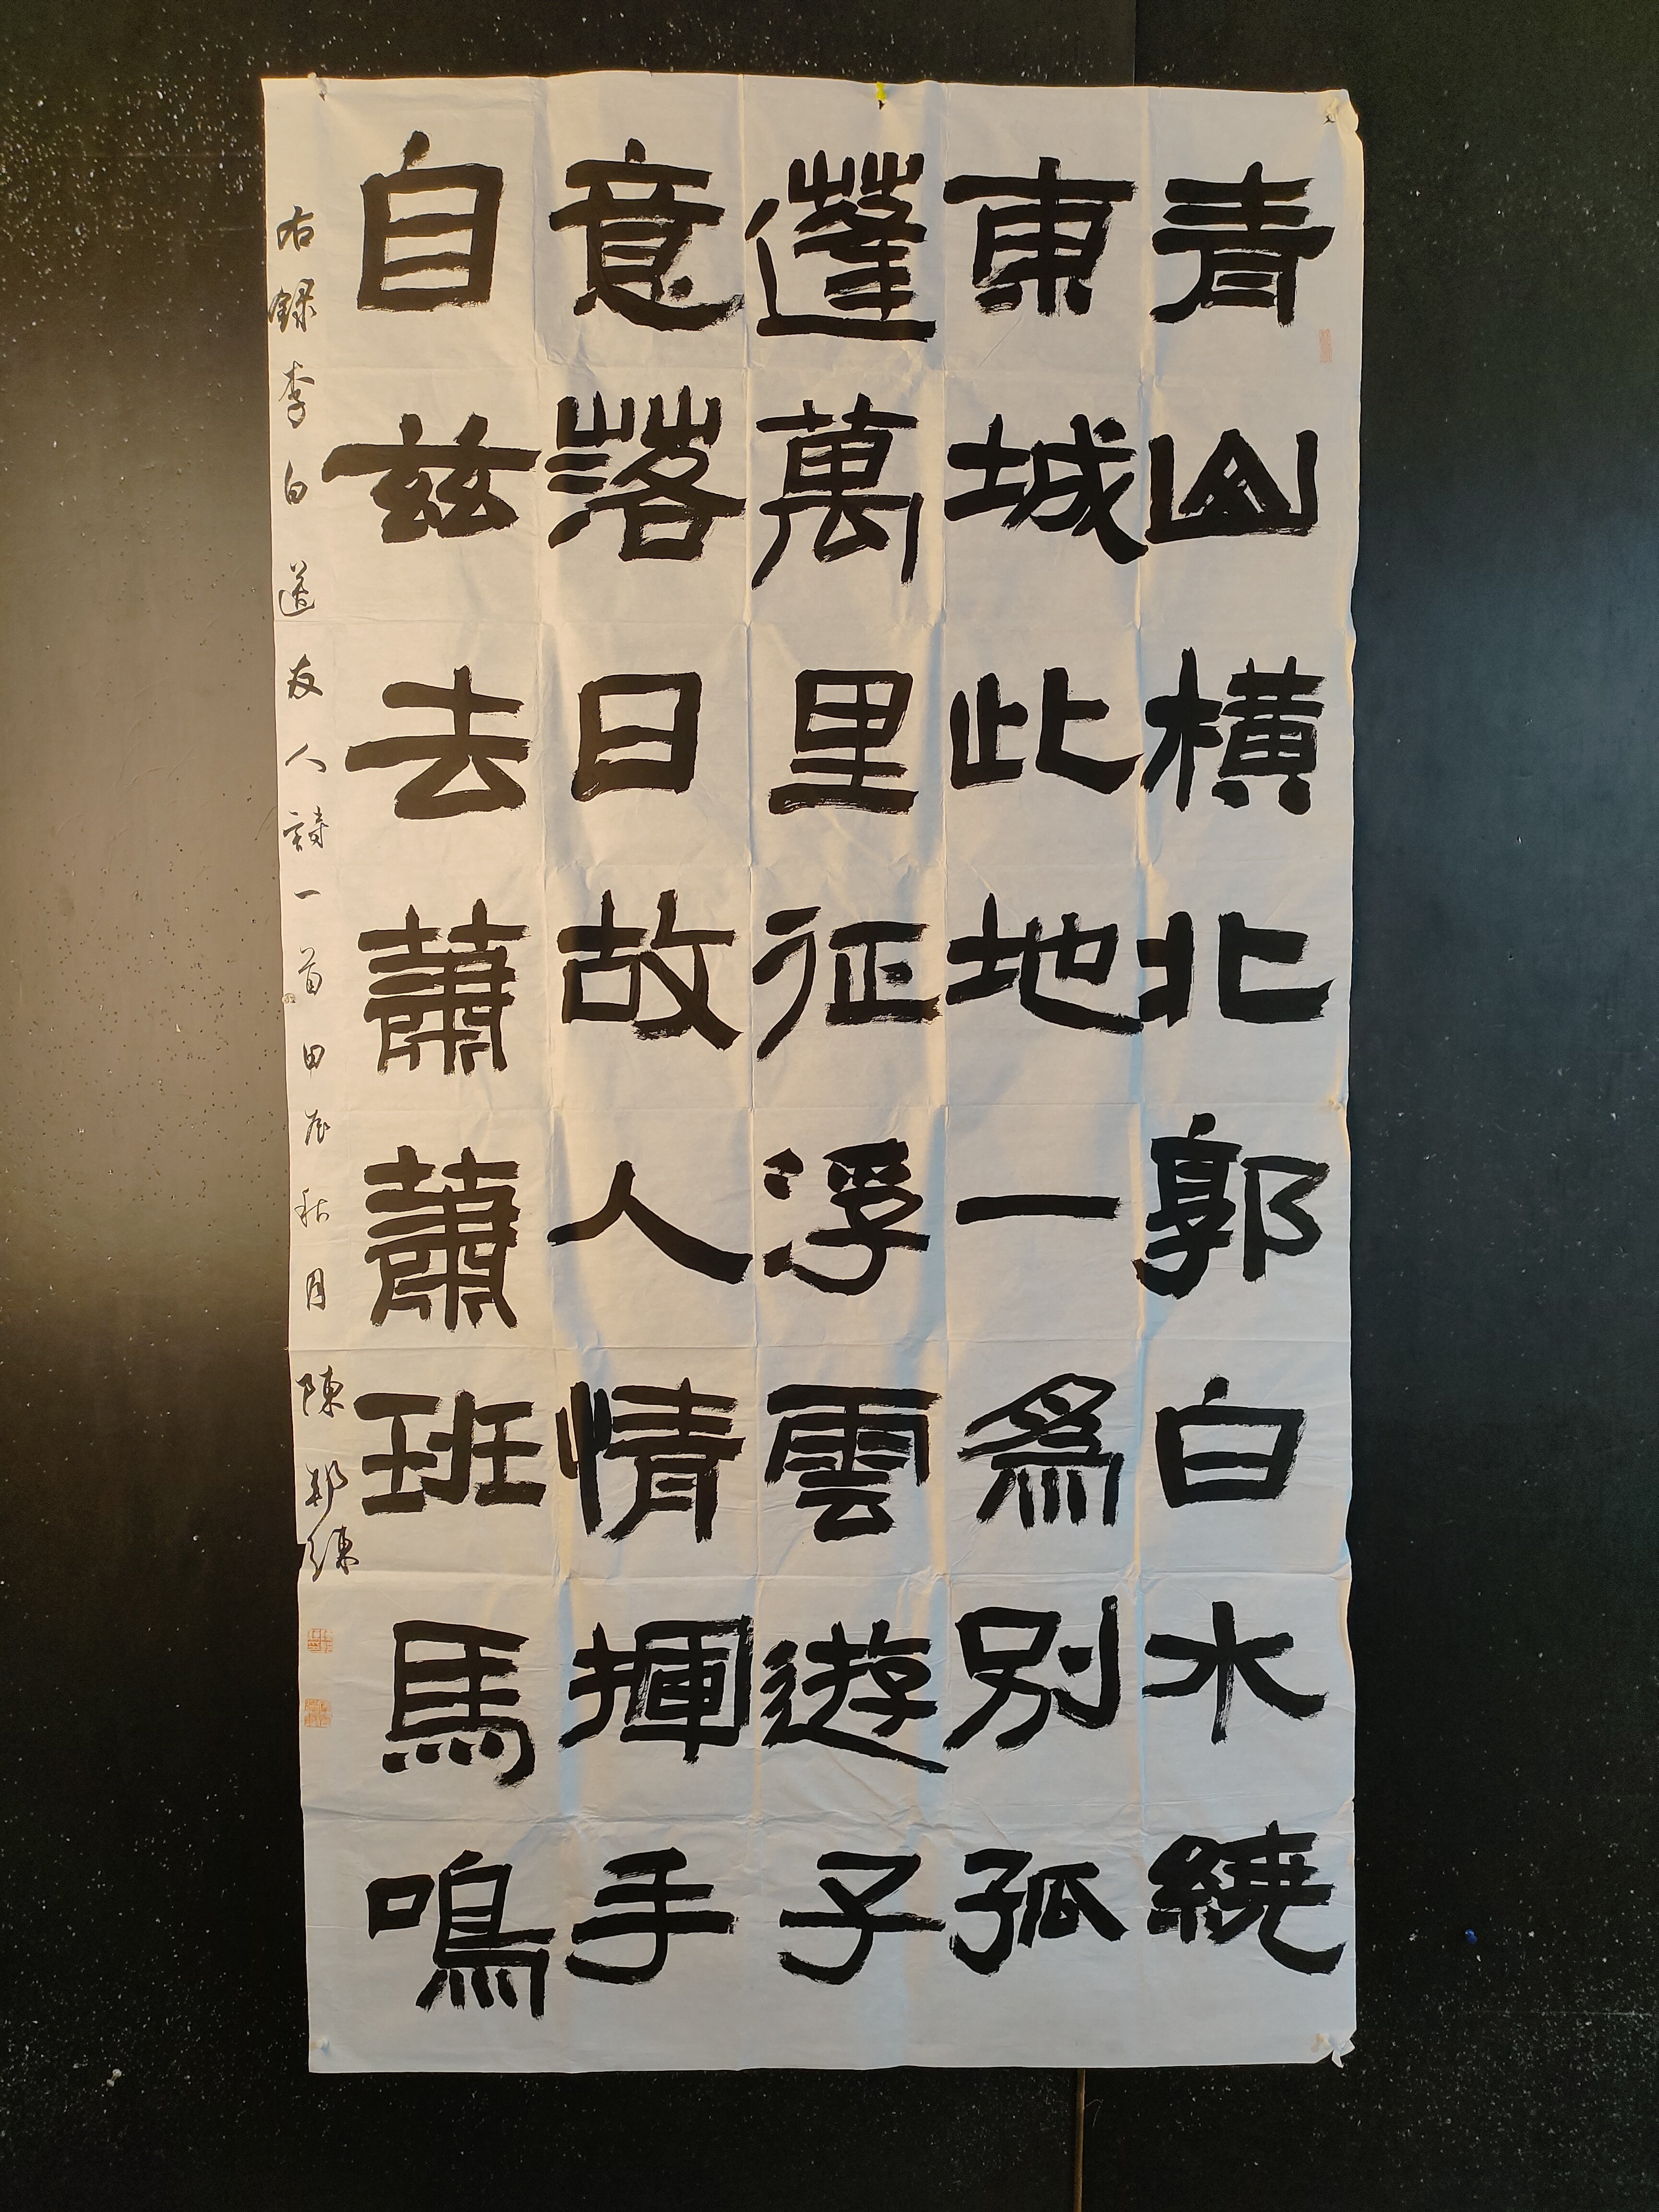 青山橫北郭白水繞
東城此地一爲別孤
蓬萬里征浮雲遊子
意落日故人情揮手
自兹去蕭蕭班馬鳴
右録李白送友人詩一首甲辰秋月陳